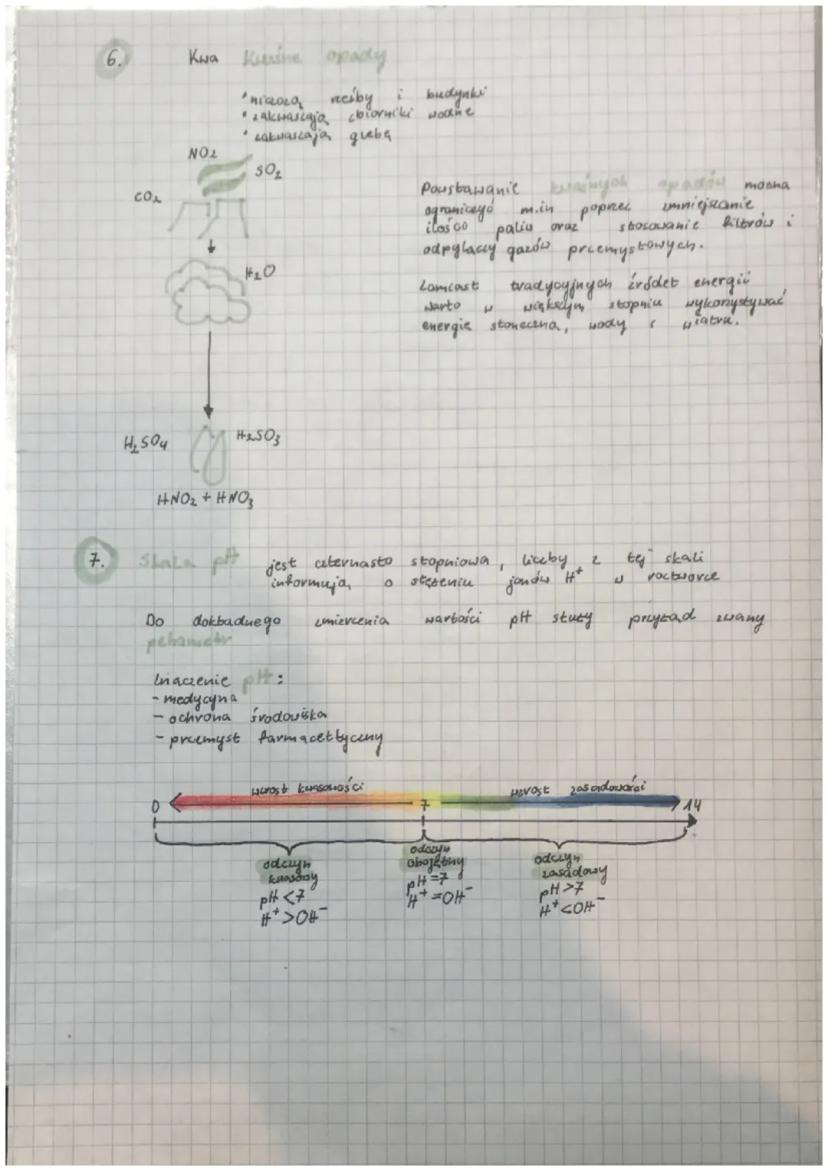 6. Kwa Kwaśne opady
• niszczą rzeźby i budynki
• zakwaszają zbiorniki wodne
• zakwaszają glebę
NO2
SO2
CO2
H2O
Powstawanie kwaśnych opadów można
ograniczyć m.in poprzez zmniejszanie
ilości paliw oraz stosowanie filtrów i
odpylaczy gazów przemysłowych.
Zamiast tradycyjnych źródeł energii
warto w większym stopniu wykorzystywać
energię słoneczną, wody i wiatru.
H2SO4
H2SO3
HNO2 + HNO3
7. Skala pH jest czternasto stopniowa, liczby z tej skali
informują o stężeniu jonów H+ w roztworze
Do dokładnego zmierzenia wartości pH służy przyrząd zwany
pehametr
Znaczenie pH:
- medycyna
- ochrona środowiska
- przemysł farmacettyczny
wzrost kwasowości wzrost zasadowości
0 7 14
odczyn kwasowy
pH <7
H+ >OH-
odczyn obojętny
pH =7
H+ =OH-
odczyn zasadowy
pH >7
H+ <OH-